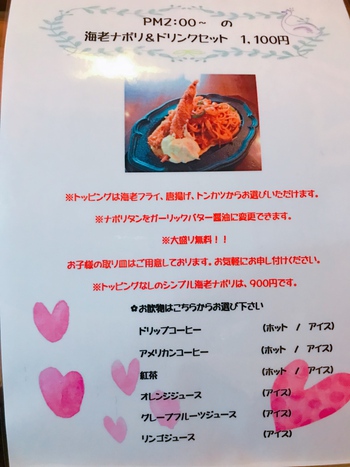 PM2:00～ の
海老ナポリ&ドリンクセット 1,100円
※トッピングは海老フライ、唐揚げ、トンカツからお選びいただけます。
※ナポリタンをガーリックバター醤油に変更できます。
※大盛り無料！！
お子様の取り皿はご用意しております。お気軽にお申し付けください。
※トッピングなしのシンプル海老ナポリは、900円です。
✿お飲物はこちらからお選び下さい
ドリップコーヒー (ホット / アイス)
アメリカンコーヒー (ホット / アイス)
紅茶 (ホット / アイス)
オレンジジュース (アイス)
グレープフルーツジュース (アイス)
リンゴジュース (アイス)